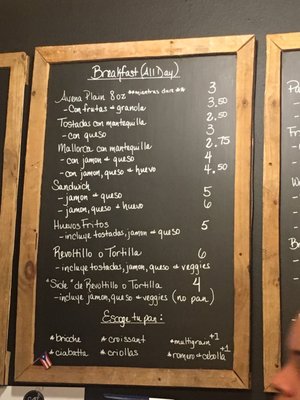 Breakfast (All Day)
Avena Plain 8oz **mientras dure** 3
- Con frutas + granola 3.50
Tostadas con mantequilla 2.50
- con queso 3
Mallorca con mantequilla 2.75
- con jamon + queso 4
- con jamon, queso + huevo 4.50
Sandwich
- jamon + queso 5
- jamon, queso + huevo 6
Huevos Fritos 5
- incluye tostadas, jamon + queso
Revoltillo o Tortilla 6
- incluye tostadas, jamon, queso + veggies
"Side" de Revoltillo o Tortilla 4
- incluye jamon, queso + veggies (no pan)
Escoge tu pan:
* brioche * croissant * multigrain +1
* ciabatta * criollas * romero + cebolla +1